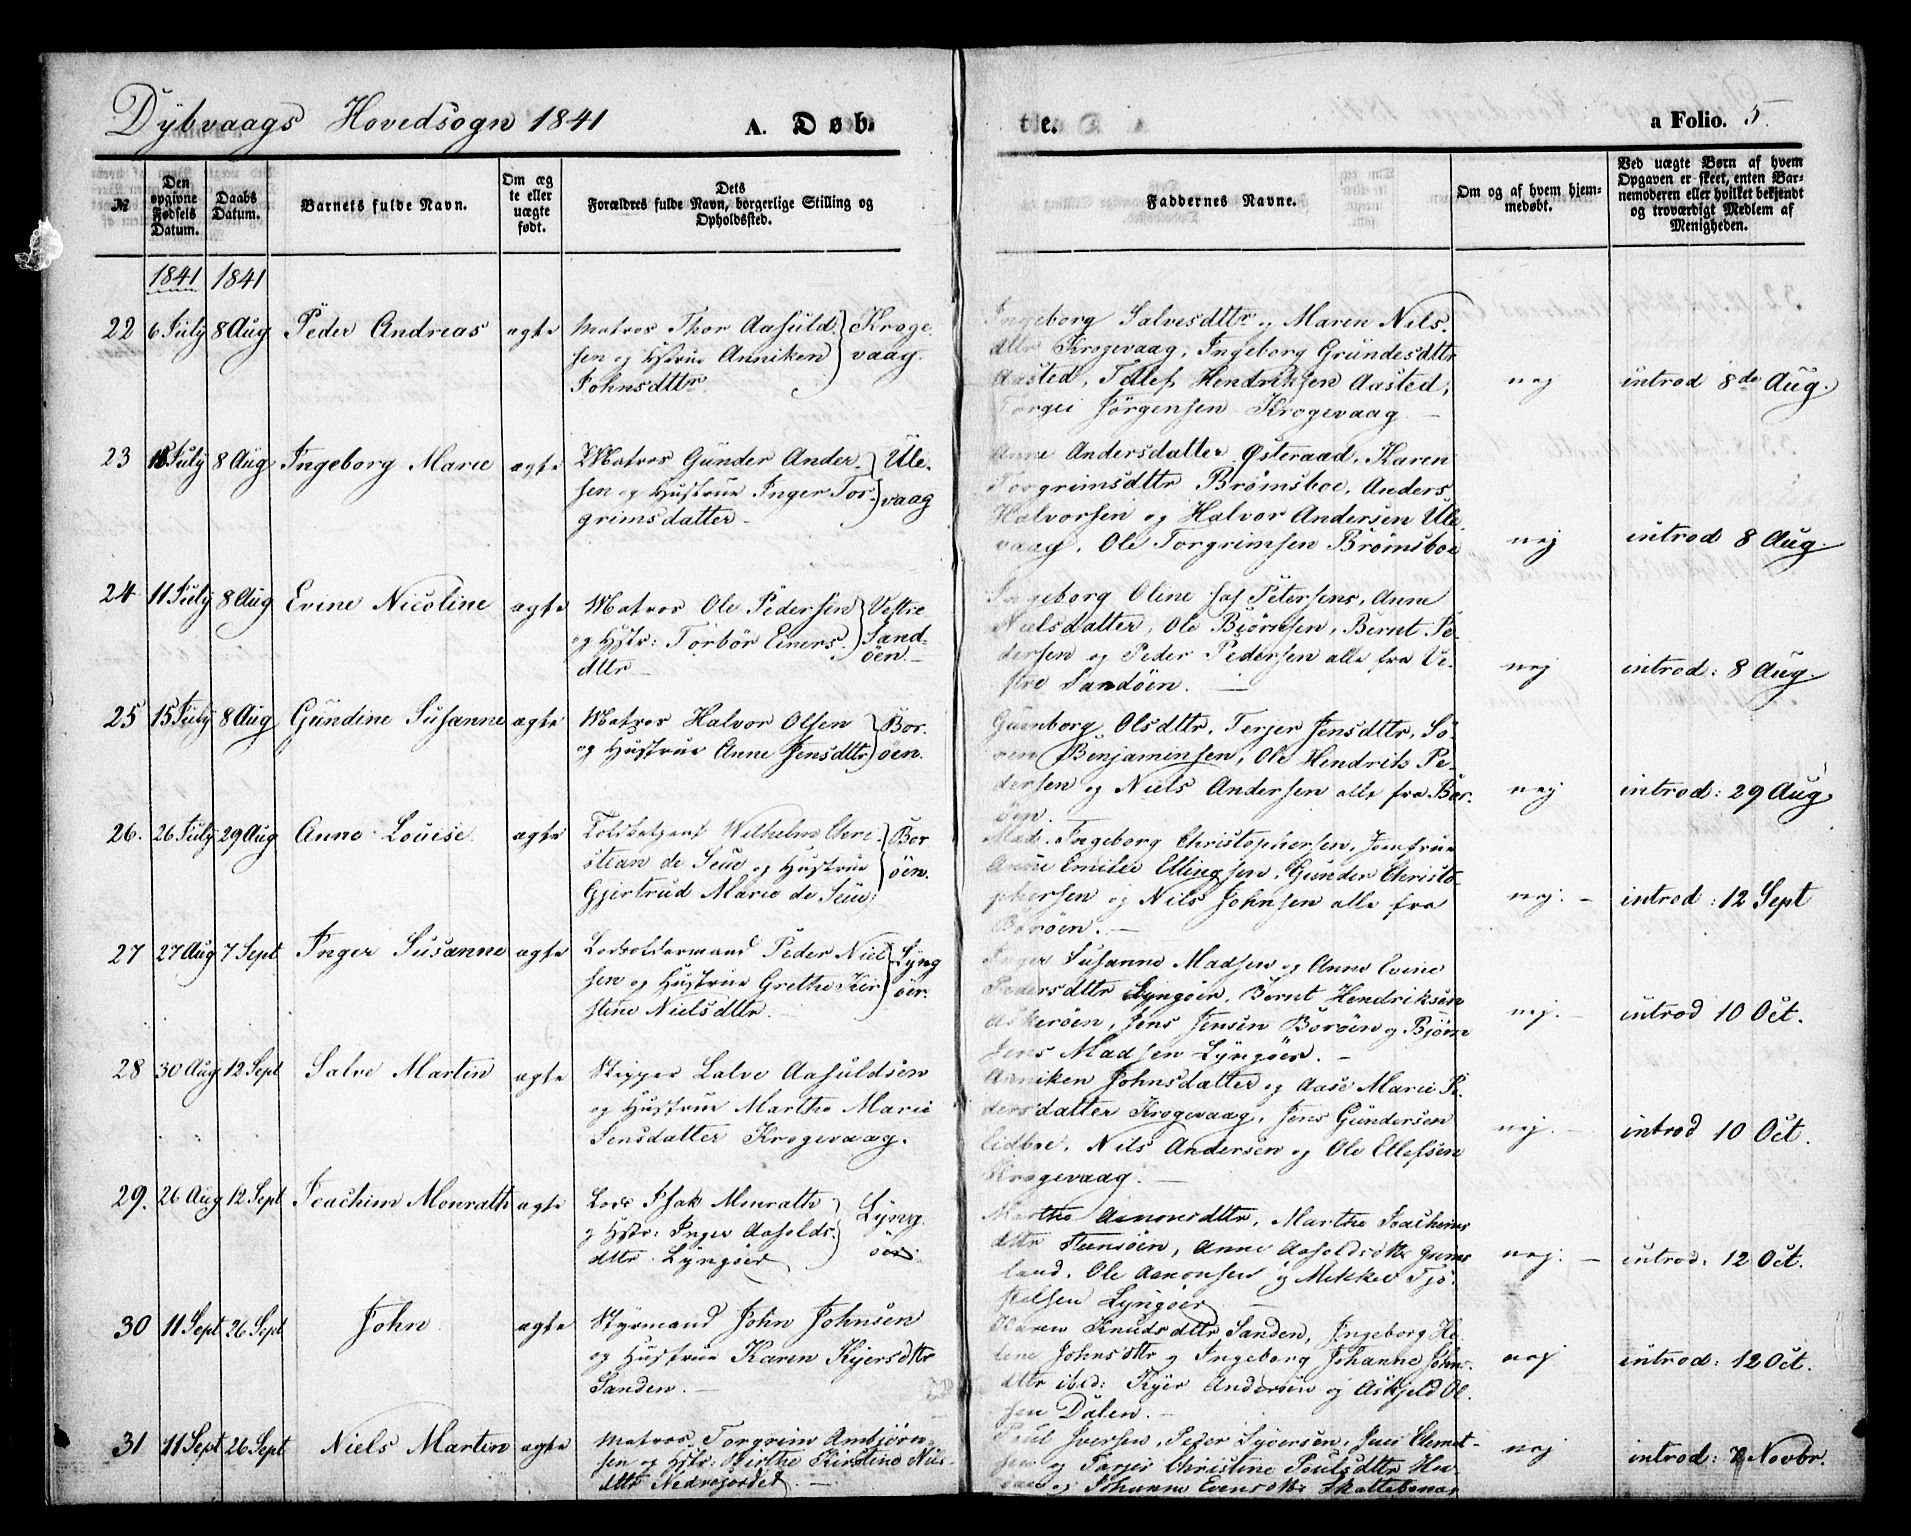 Dybvaags Hovedsogn 1841
A. Døb- te. a Folio. 5
No
Den opgivne Fødsels Datum.
Daabs Datum.
Barnets fulde Navn.
Om ægte eller uægte født.
Dets Forældres fulde Navn, borgerlige Stilling og Opholdssted.
Faddernes Navne.
Om og af hvem hjemmedøbt.
Ved uægte Børn af hvem Opgaven er skeet, enten Barnemoderen eller hvilket bekjendt og troværdigt Medlem af Menigheden.
1841 1841
22 6 July 8 Aug Peder Andreas ægte
Matros Thor Aasuld-
sen og Hstrue Anniken
Johnsdttr
Kroge-
vaag
Ingeborg Salvesdttr og Maren Nils-
dttr Krogevaag, Ingeborg Gundesdttr
Aasted, Tellef Hendriksen Aasted,
Torgei Jörgensen Krogevaag
nej
introd 8de Aug.
23 July 8 Aug Ingeborg Marie ægte
Matros Gunder Ander-
sen og Hustrue Inger Tor-
grimsdatter
Ule-
vaag
Anne Andersdatter Østeraad, Karen
Torgrimsdttr Brømsboe, Anders
Halvorsen og Halvor Andersen Ule-
vaag, Ole Torgrimsen Brømsboe
nej
introd 8 Aug.
24 11 July 8 Aug Evine Nicoline ægte
Matros Ole Pedersen
og Hstr: Torbör Einers-
dttr
Vestre
Sand-
öen
Ingeborg Oline Petersens, Anne
Nielsdatter, Ole Björnsen, Bernt Pe-
dersen og Peder Pedersen alle fra Ve-
stre Sandöen.
nej
introd: 8 Aug.
25 15 July 8 Aug Gundine Susanne ægte
Matros Halvor Olsen
og Hustrue Anne Jensdttr
Bor-
öen.
Gunborg Olsdttr, Terjer Jensdttr, Sö-
ren Benjaminsen, Ole Hendrik Pe-
dersen og Niels Andersen alle fra Bor-
öen.
nej
introd: 29 Aug
26. 26 July 29 Aug Anne Louise ægte
Toldbetjent Wilhelm Chri-
stian de Seue og Hustrue
Gjertrud Marie de Seue
Bor
öen.
Mad. Ingeborg Christophersen, Jomfrue
Anne Emilie Ellingsen, Gunder Christo-
phersen og Nils Johnsen alle fra
Boröen.
nej.
introd: 12 Sept
27 27 Aug 7 Sept Inger Susanne ægte
Lodsoldermand Peder Niel
sen og Hustrue Grethe Kir
stine Nielsdttr.
Lyng
öer.
Inger Susanne Madsen og Anne Evine
Pedersdttr Lyngöer, Bernt Hendriksen
Askeröen, Jens Jensen Boröen og Björn
Jens Madsen Lyngöer.
nej.
introd 10 Oct.
28 30 Aug 12 Sept Salve Martin ægte
Skipper Salve Aasuldsen
og Hustrue Marthe Marie
Jensdatter Krogevaag.
Anniken Johnsdatter og Aase Marie Pe-
dersdatter Krogevaag, Jens Gundersen
Lidboe, Nils Andersen og Ole Ellefsen
Krogevaag.
nej.
introd 10 Oct.
29. 26 Aug 12 Sept Joachim Monrath ægte
Lods Isak Monrath
og Hstr: Inger Aasolds-
dttr Lyngöer
Lyng
öer.
Marthe Aanonsdttr, Marthe Joachims
dttr Steensöen, Anne Aasoldsdttr
land, Ole Aanonsen og Mikkel Tjö-
stelsen Lyngöer
nej:
introd: 12 Oct.
30 11 Sept 26 Sept John ægte
Styrmand John Johnsen
og Hustrue Karen Kjersdttr
Sanden.
Karen Knudsdttr Sanden, Ingeborg He-
lene Johnsdttr og Ingeborg Johanne Johns-
dttr ibid: Kjer Andersen og Askjeld Ol-
sen Dalen.
nej
introd: 12 Oct.
31 11 Sept 26 Sept Niels Martin ægte
Matros Torgrim Ambjörn-
sen og Hstr: Birthe Kirstine Niels-
dttr Nedrejordet.
Poul Iversen, Peder Syversen, Jens Clemet-
sen og Torjer Christine Poulsdttr
og Johanne Evensdttr Skottebenas
nej
introd: Novbr.